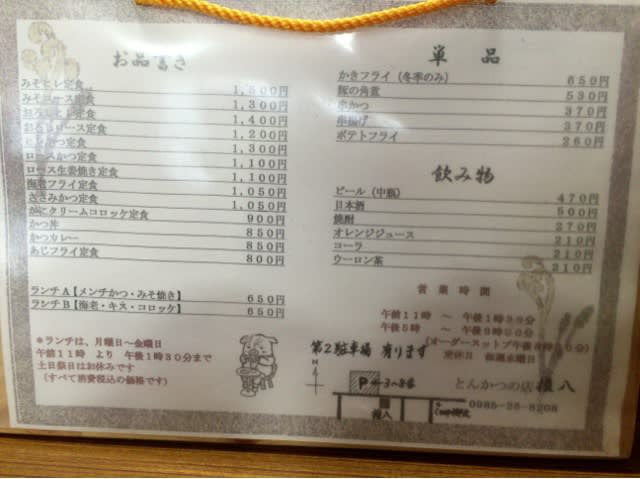 お品書き
みそヒレ定食 1,500円
みそロース定食 1,300円
おろしヒレ定食 1,400円
おろしロース定食 1,200円
定食 1,300円
ロースかつ定食 1,100円
ロース生姜焼き定食 1,100円
海老フライ定食 1,050円
ささみかつ定食 1,050円
かにクリームコロッケ定食 900円
かつ丼 850円
かつカレー 850円
あじフライ定食 800円
ランチA【メンチかつ・みそ焼き】 650円
ランチB【海老・キス・コロッケ】 650円
*ランチは、月曜日~金曜日
午前11時 より 午後1時30分まで
土日祭日はお休みです
(すべて消費税込の価格です)
単品
かきフライ(冬季のみ) 650円
豚の角煮 530円
串かつ 370円
串揚げ 370円
ポテトフライ 260円
飲み物
ビール(中瓶) 470円
日本酒 500円
焼酎 270円
オレンジジュース 210円
コーラ 210円
ウーロン茶 210円
営業時間
午前11時 ~ 午後1時30分
午後5時 ~
定休日 毎週水曜日
第2駐車場 有ります
とんかつの店
P